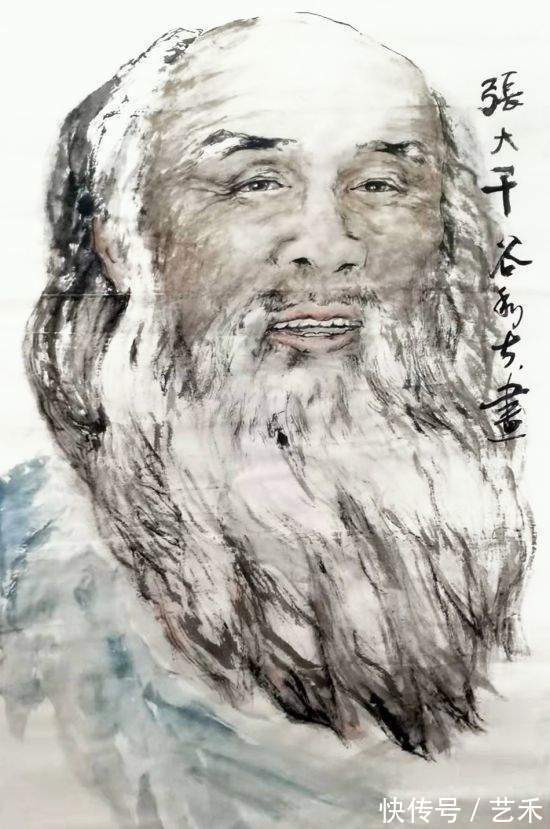 張大千 谷利夫畫
快传号/艺禾